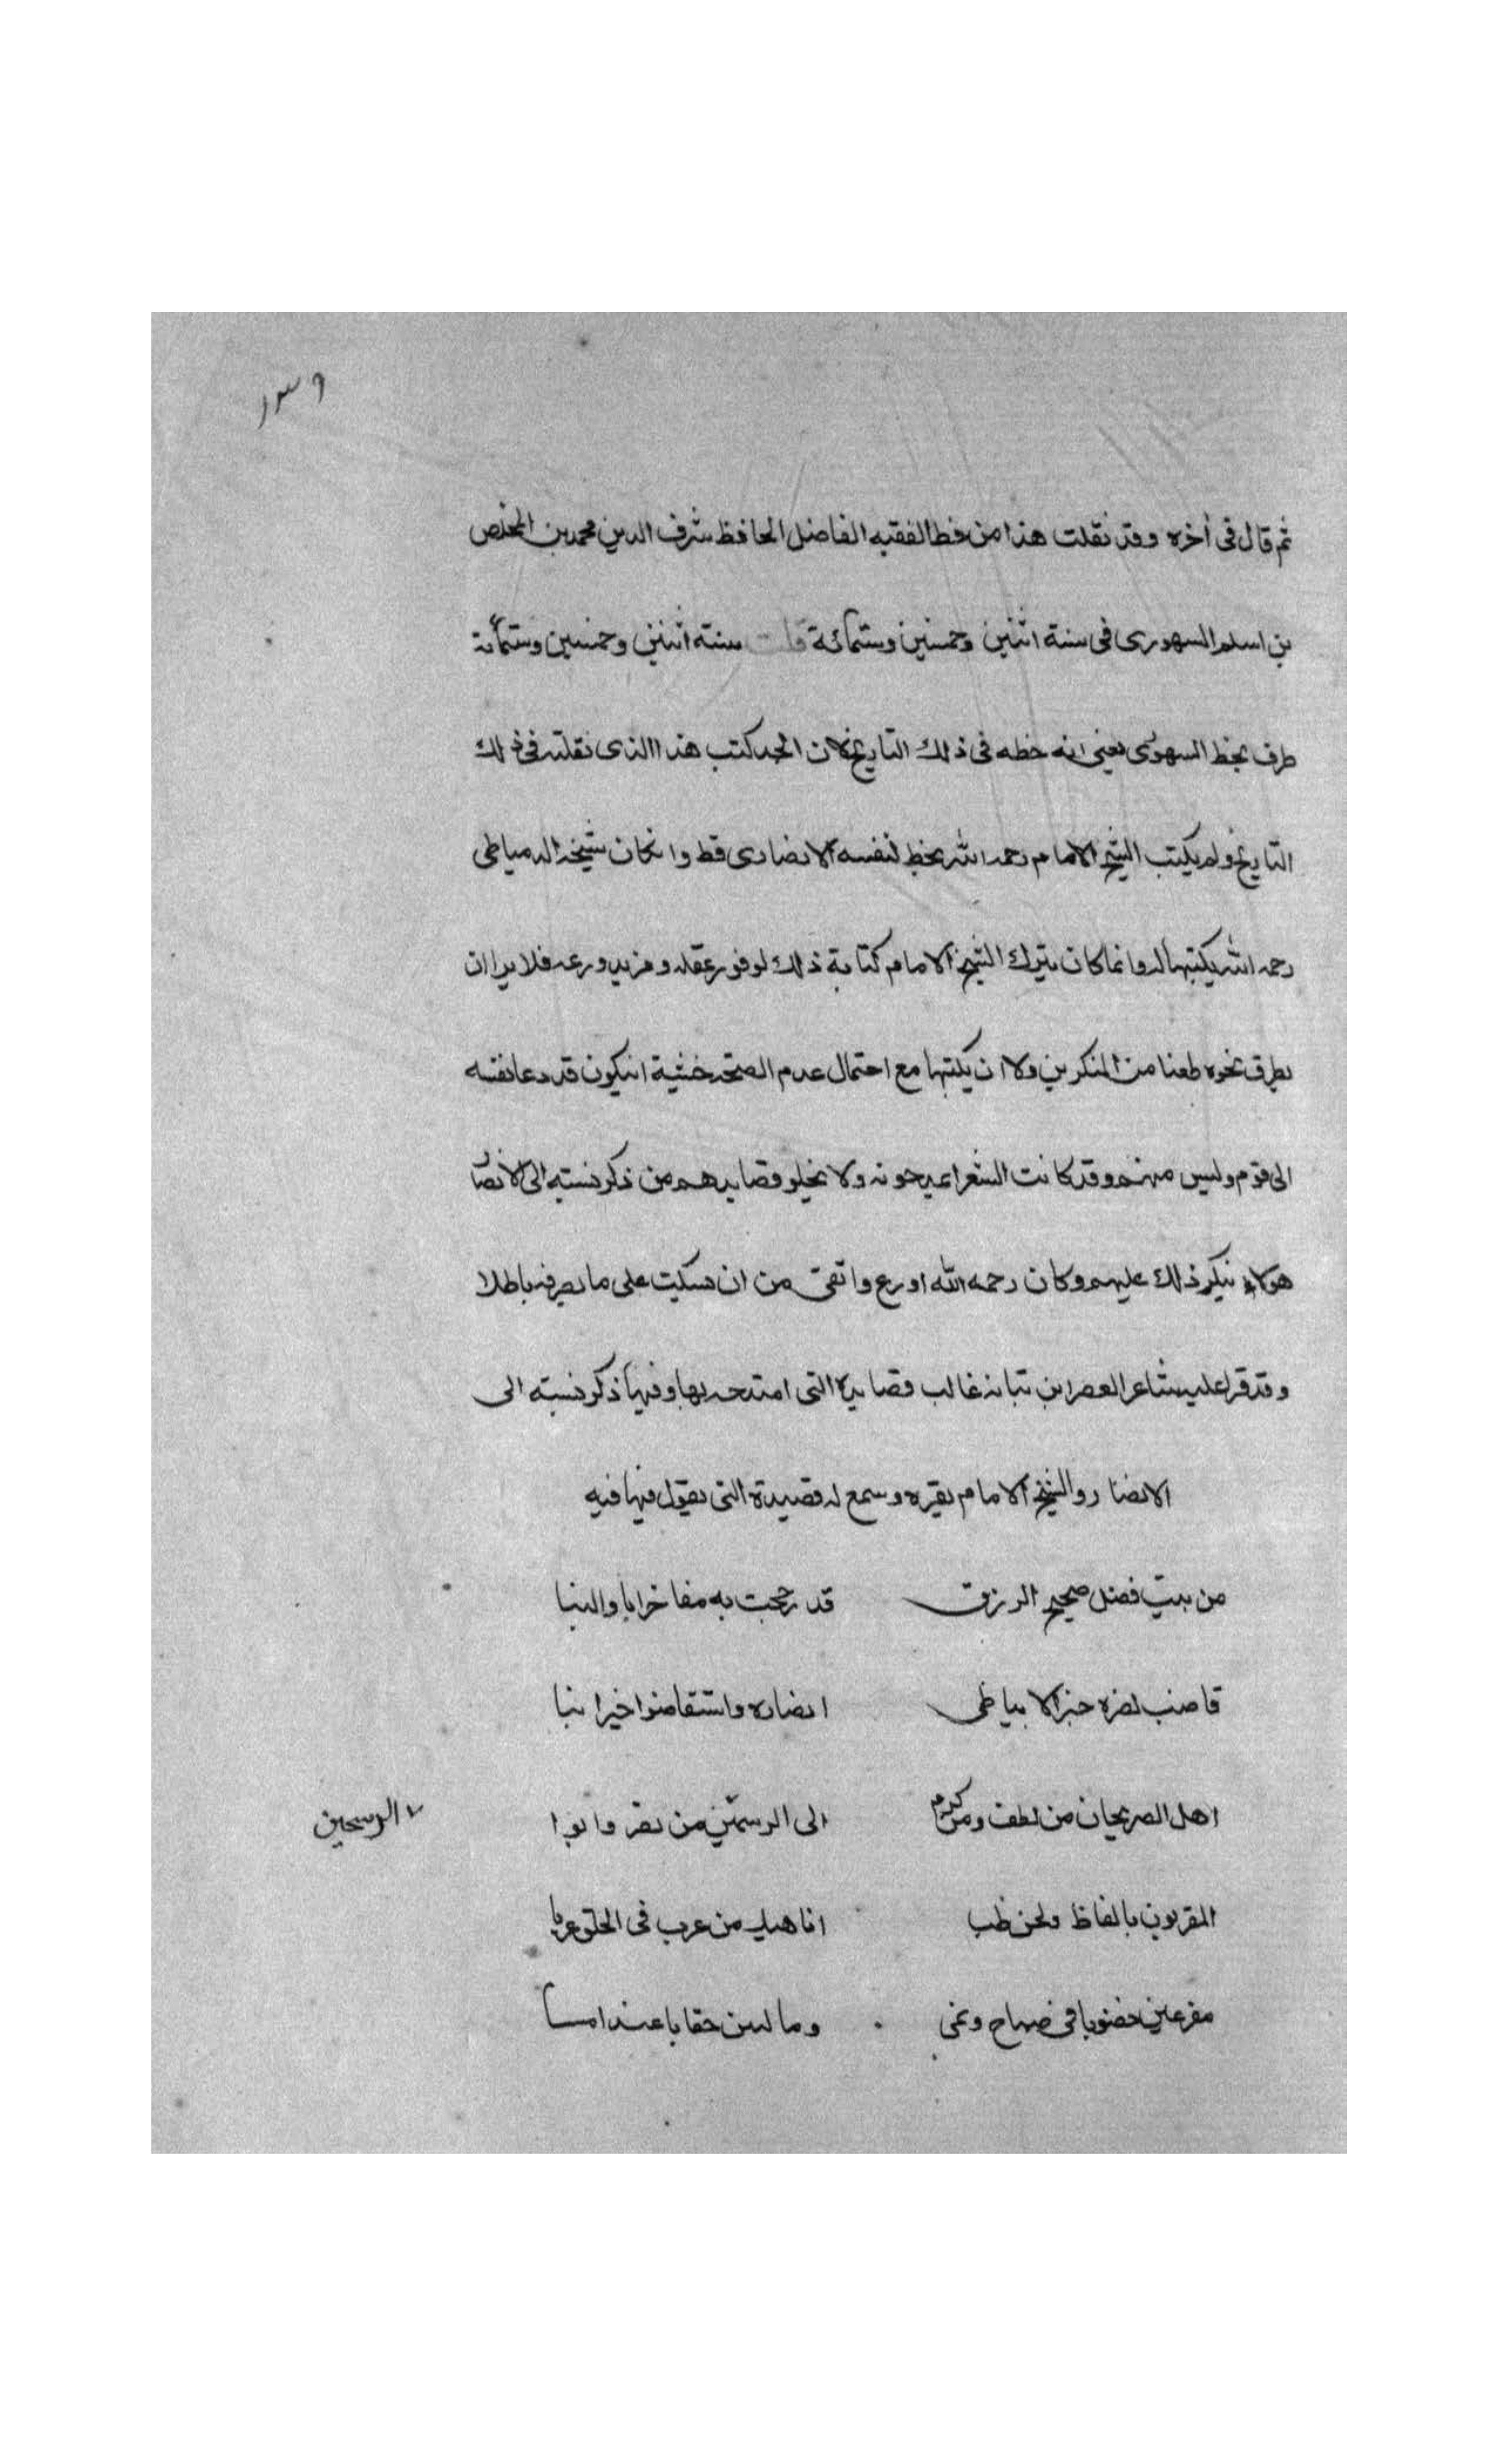 ثم قال فى أخره وقد نقلت هذا من خط الفقيه الفاضل الحافظ شرف الدين محمد بن المخلص
بن اسلم السهورى فى سنة اثنين وخمسين وستمائة قلت سنته اثنين وخمسين وستمأنة
طرف بخط السهورى يعنى انه خطه فى ذلك التاريخ لان الجد كتب هذا الذى نقلته فى ذلك
التاريخ ولم يكتب الشيخ الامام رحمه الله بخط لنفسه الانصارى قط وانكان شيخه الدمياطى
رحمه الله يكتبها له وانما كان يترك الشيخ الامام كتابة ذلك لوفور عقله ومزيد ورعه فلا يرا ان
يطرق نحوه طعنا من المنكرين ولا ان يكتبها مع احتمال عدم الصحة خشية انيكون قد دعا نفسه
الى قوم وليس منهم وقد كانت الشعرا يمدحونه ولا يخلو قصايدهم من ذكر نسبته الى الانصار
هولاء ينكر ذلك عليهم وكان رحمه الله اورع واتقى من ان يسكت على ما يعرفه باطلا
وقد قرا عليه شاعر العصر ابن نباته غالب قصايده التى امتدحه بها وفيها ذكر نسبته الى
الانصار والشيخ الامام يقره وسمع له قصيدة التى يقول فيها فيه
من بيت فضل صحيح الرزق قد رجحت به مفاخر ابا والبنا
انصاره واستقاضوا خير انبا
اهل الصريحان من لطف ومن كرم الى الرسمين من
٧ الرسحين
المقربون بالفاظ ولحن ظب اناهيك من عرب فى الخلق عربا
مفرعين فى صباح وغى وما عند امسا